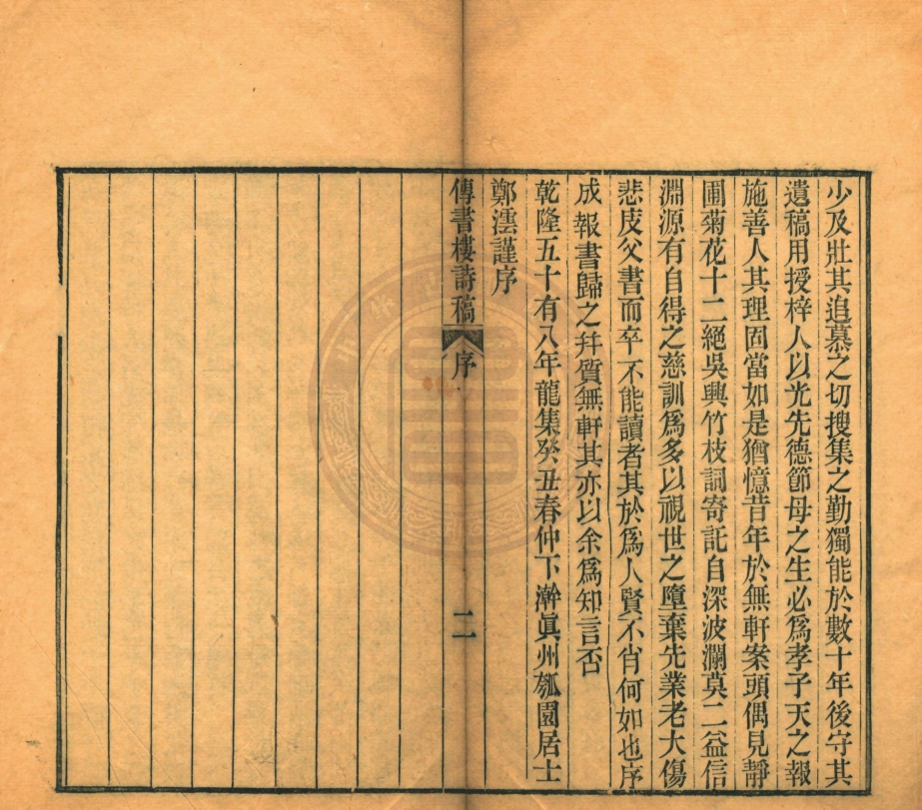 少及壯其追慕之切搜集之勤獨能於數十年後守其
遺稿用授梓人以光先德節母之生必爲孝子天之報
施善人其理固當如是猶憶昔年於無軒案頭偶見靜
圃菊花十二絕吳興竹枝詞寄託自深波瀾莫二益信
淵源有自得之慈訓爲多以視世之墮棄先業老大傷
悲庋父書而卒不能讀者其於爲人賢不肖何如也序
成報書歸之幷質無軒其亦以余爲知言否
乾隆五十有八年龍集癸丑春仲下澣眞州瓠園居士
鄭澐謹序
傳書樓詩稿 序 二